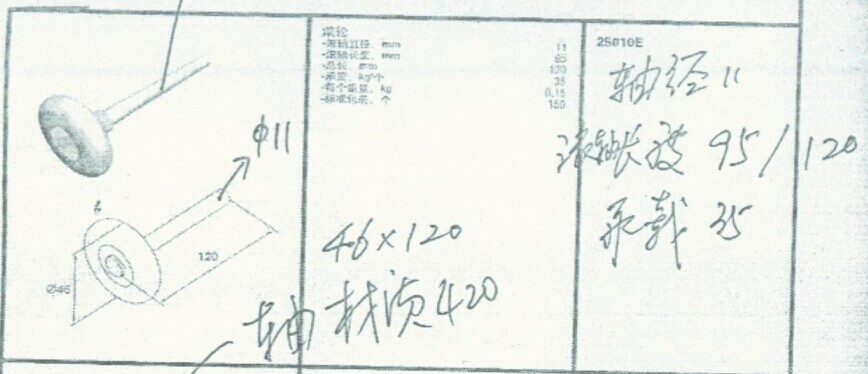 滚轮
-滚轴直径, mm 11
-滚轴长度, mm
-总长, mm 120
-承重, kg/个 35
-每个重量, kg 0,15
-标准包装, 个 150
25010E
轴径 11
滚轴长度 95/120
承载 35
φ11
120
Ø46
46×120
轴材质420